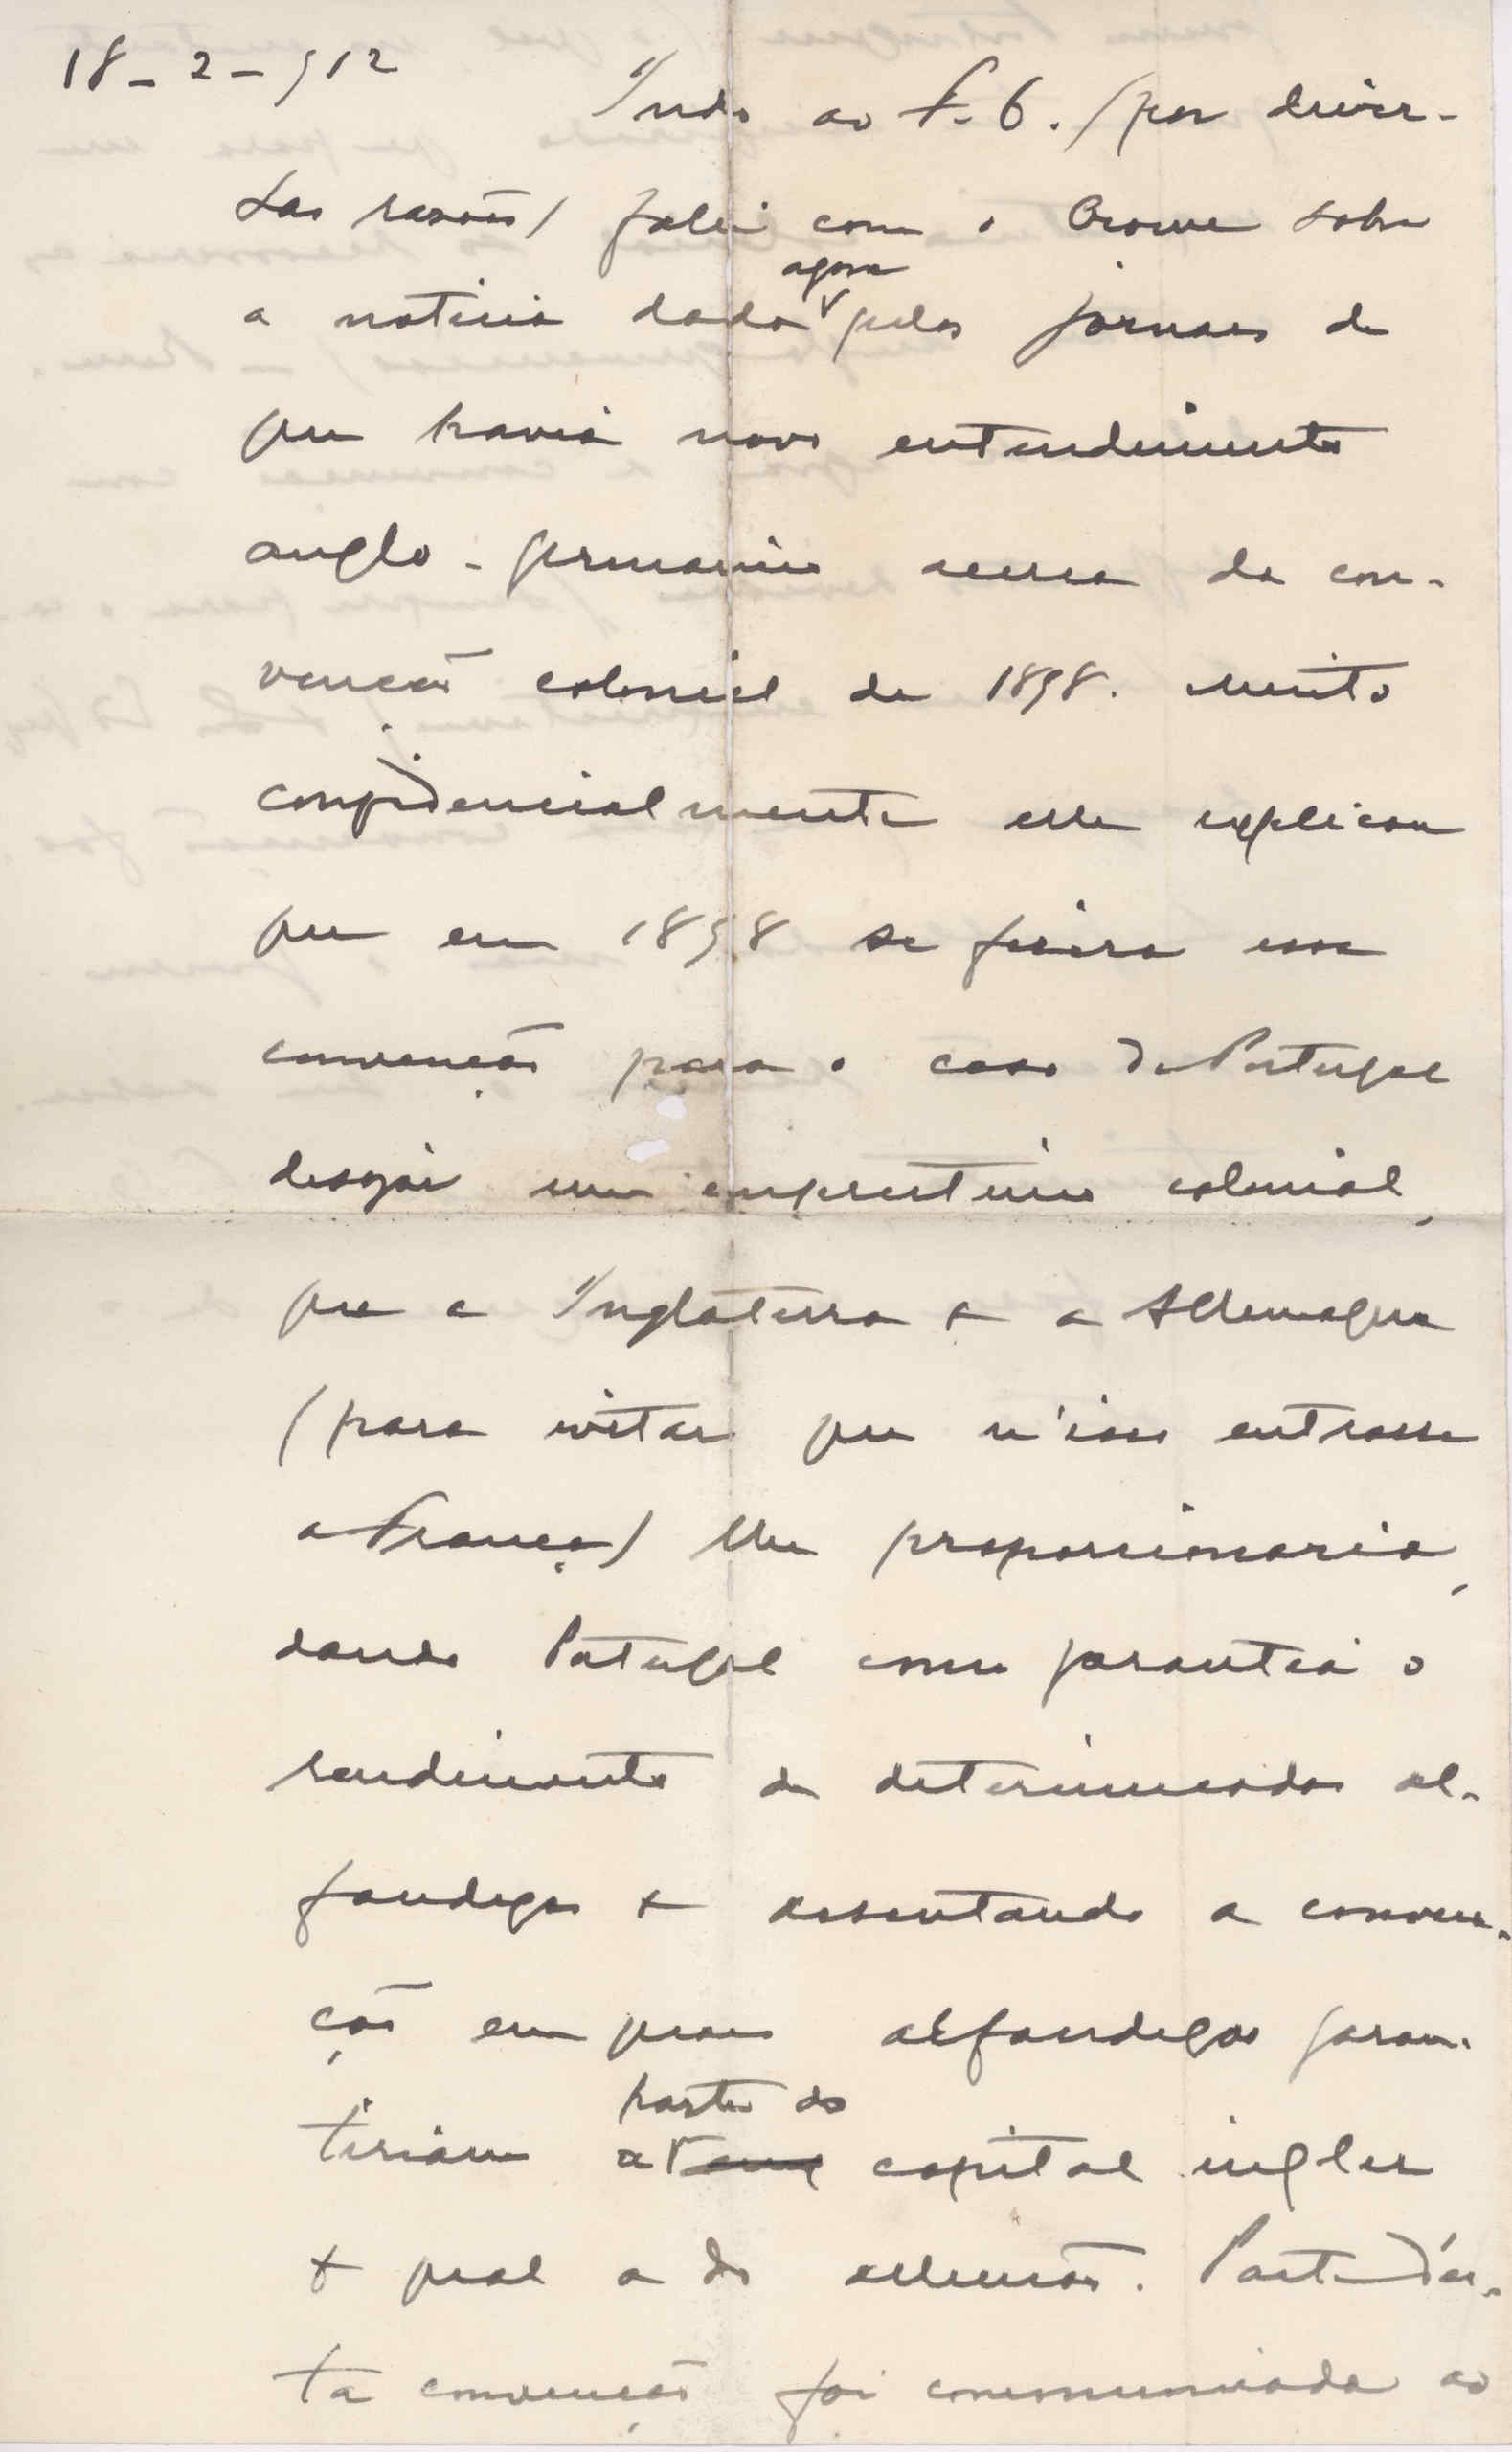 18-2-912
Indo ao F.O. (por diver-
sas razões) falei com o Crowe sobre
a noticia dada agora pelos jornaes de
que havia novo entendimento
anglo-germanico acerca da con-
venção colonial de 1898. Muito
confidencialmente elle explicou
que em 1898 se fizera essa
convenção para o caso de Portugal
desejar um emprestimo colonial,
que a Inglaterra e a Allemagna
(para evitar que n'isso entrasse
a França) lhe proporcionaria,
dando Portugal como garantia o
rendimento de determinadas al-
fandegas e assentando a conven-
ção em quaes alfandegas garan-
tiriam a parte do capital inglez
e qual a do allemão. Parte d'es-
ta convenção foi communicada ao